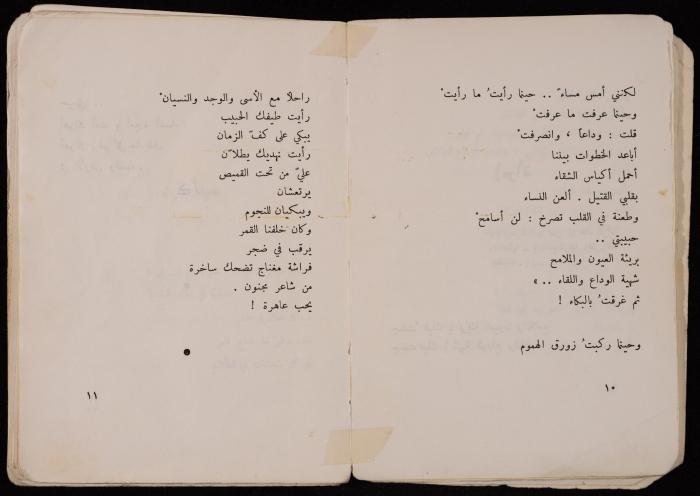 لكنني أمس مساءً .. حينما رأيتُ ما رأيتْ
وحينما عرفت ما عرفتْ
قلت : وداعاً ، وانصرفتْ
أباعد الخطوات بيننا
أحمل أكياس الشقاء
بقلبي القتيل . ألعن النساء
وطعنة في القلب تصرخ : لن أسامحْ
حبيبتي ..
بريئة العيون والملامح
شهية الوداع واللقاء .. »
ثم غرقتُ بالبكاء !
وحينما ركبتُ زورق الهموم
١٠
راحلاً مع الأسى والوجد والنسيانْ
رأيت طيفك الحبيب
يبكي على كفّ الزمان
رأيت نهديك يطلاّن
عليّ من تحت القميص
يرتعشان
ويبكيان للنجوم
وكان خلفنا القمر
يرقب في ضجر
فراشة مغناج تضحك ساخرة
من شاعر مجنون .
يحب عاهرة !
١١